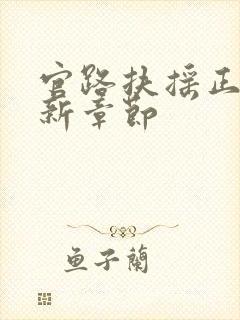 官路扶摇正
新章節
鱼子蘭